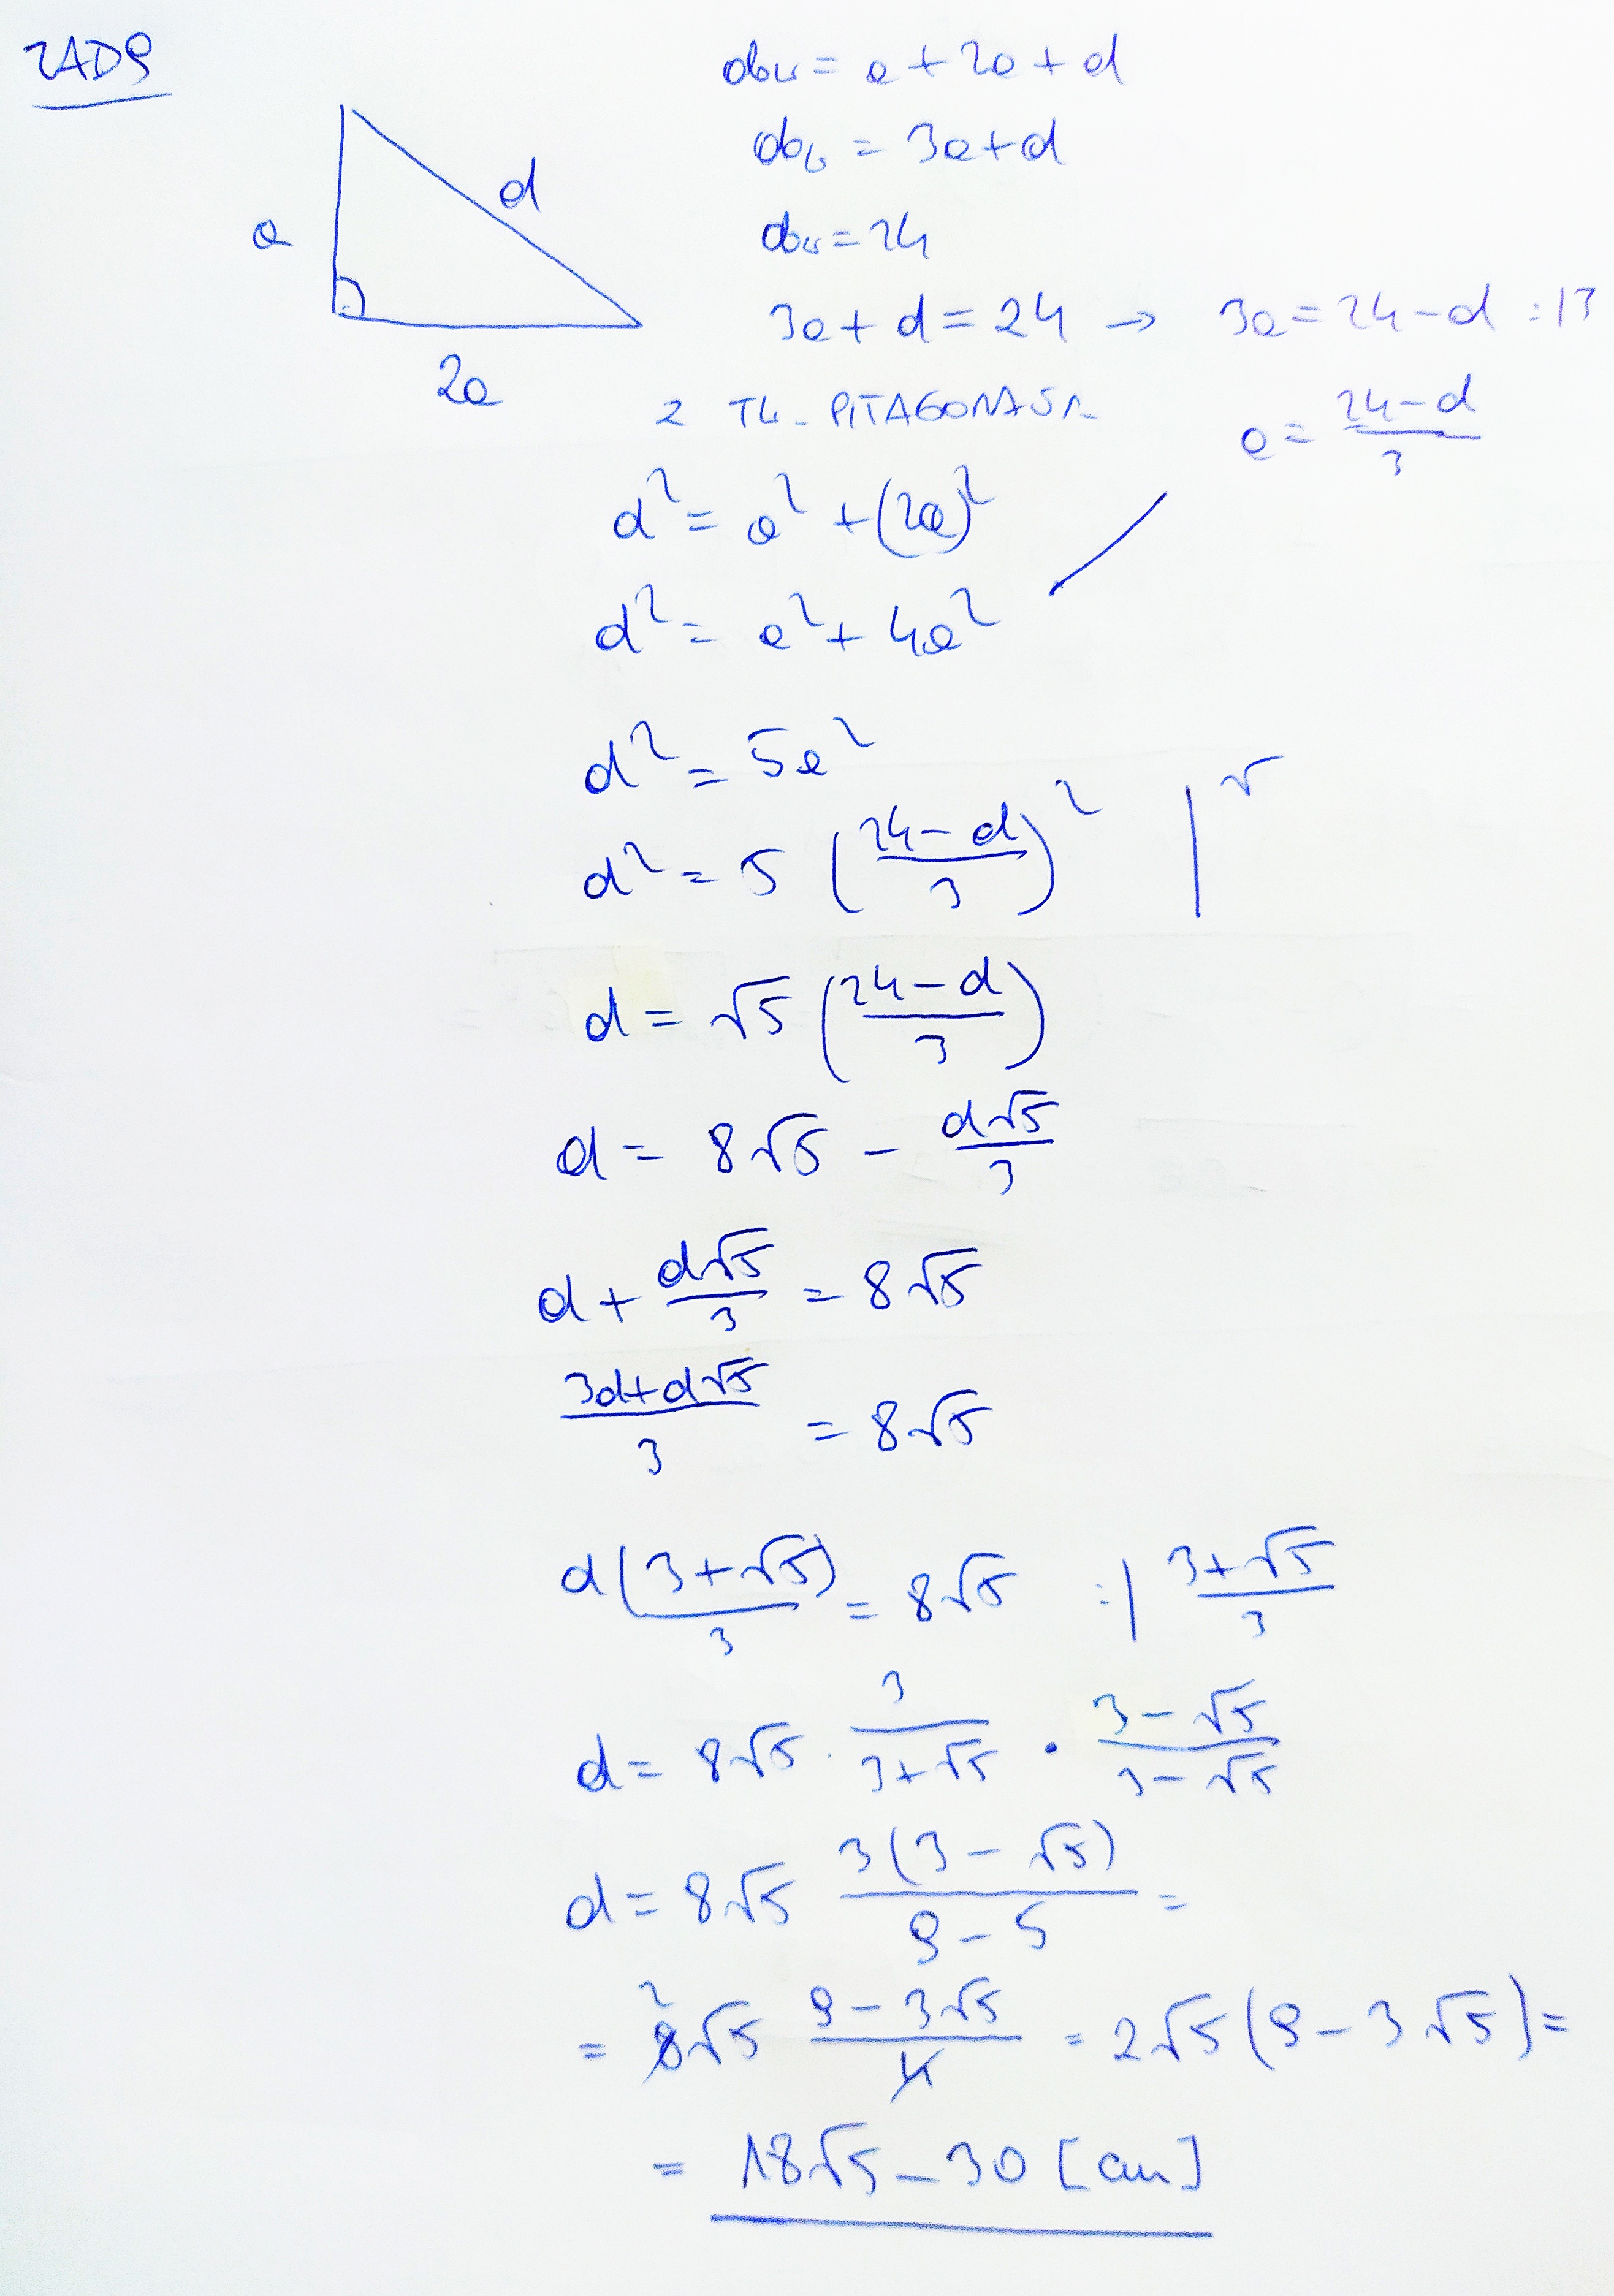 ZAD9
obw = a + 2a + d
obw = 3a + d
obw = 24
3a + d = 24 → 3a = 24 - d :|3
a
d
2a
z TW. PITAGORASA
a = \frac{24-d}{3}
d² = a² + (2a)²
d² = a² + 4a²
d² = 5a²
d² = 5 (\frac{24-d}{3})² | √
d = √5 (\frac{24-d}{3})
d = 8√5 - \frac{d√5}{3}
d + \frac{d√5}{3} = 8√5
\frac{3d+d√5}{3} = 8√5
\frac{d(3+√5)}{3} = 8√5 :| \frac{3+√5}{3}
d = 8√5 · \frac{3}{3+√5} · \frac{3-√5}{3-√5}
d = 8√5 \frac{3(3-√5)}{9-5} =
= 8√5 \frac{9-3√5}{4} = 2√5(9-3√5) =
2
= 18√5 - 30 [cm]